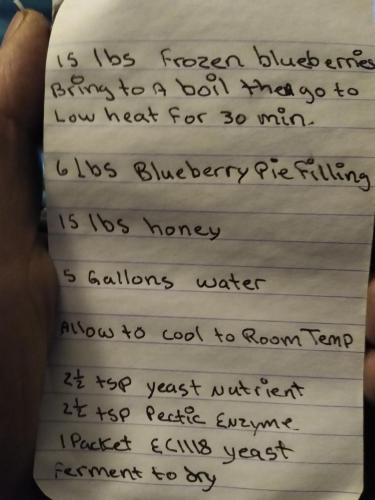 15 lbs Frozen blueberries
Bring to A boil then go to
Low heat for 30 min.
6 lbs Blueberry Pie Filling
15 lbs honey
5 Gallons water
Allow to cool to Room Temp
2½ tsp yeast nutrient
2½ tsp Pectic Enzyme
1 Packet EC1118 yeast
Ferment to dry